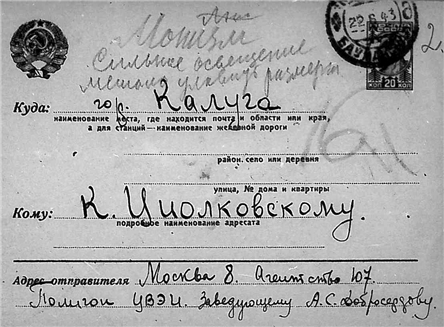 Монизм
Сильное освещение
мешало уловить размеры
22 6 43
20
КОП КОП
2.
Куда: гор. Калуга
наименование места, где находится почта и области или края,
а для станций—наименование железной дороги
район, село или деревня
улица, № дома и квартиры
Кому: К. Циолковскому.
подробное наименование адресата
Адрес отправителя Москва 8. Агентство 107.
Полигон ЦВЭИ. Заведующему А.С. Добросердову